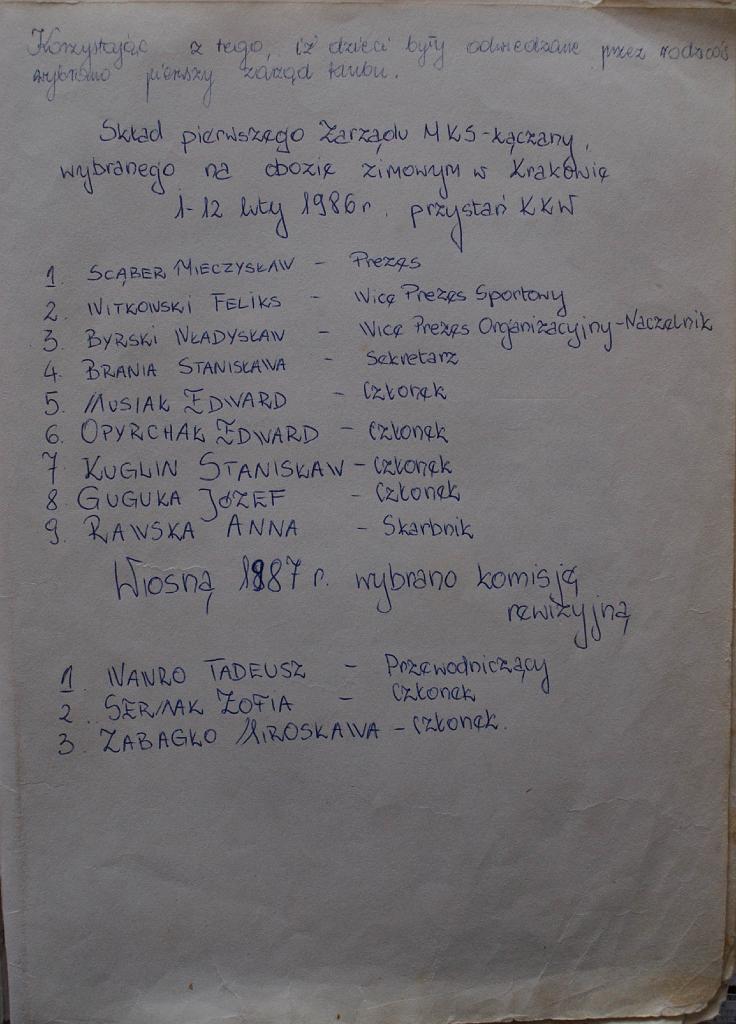 Korzystając z tego, iż dzieci były odwiedzane przez rodziców
wybrano pierwszy zarząd klubu.
Skład pierwszego Zarządu MKS-Łączany,
wybranego na obozie zimowym w Krakowie
1-12 luty 1986r. przystań KKW
1. SCĄBER MIECZYSŁAW - Prezes
2. WITKOWSKI FELIKS - Wice Prezes Sportowy
3. BYRSKI WŁADYSŁAW - Wice Prezes Organizacyjny-Naczelnik
4. BRANIA STANISŁAWA - Sekretarz
5. MUSIAŁ EDWARD - Członek
6. OPYRCHAŁ EDWARD - Członek
7 KUGLIN STANISŁAW - Członek
8 GUGUŁA JÓZEF - Członek
9. RAWSKA ANNA - Skarbnik
Wiosną 1987 r. wybrano komisję
rewizyjną
1 WAWRO TADEUSZ - Przewodniczący
2. ZOFIA - Członek
3. ZABAGŁO MIROSŁAWA - Członek.